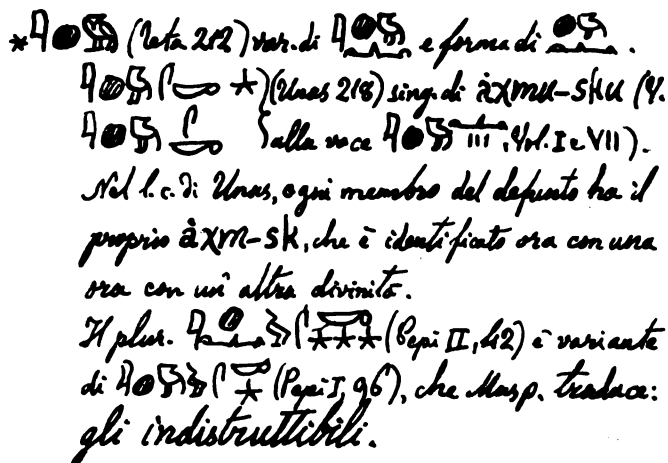 * 𓇋𓐍𓅓 (Teta 212) var. di 𓇋𓐍𓅓𓂜 e forma di 𓐍𓅓𓂜.
(Unas 218) sing. di ȧχmu-sku (V.
alla voce, Vol. I e VII).
Nel l.c. di Unas, ogni membro del defunto ha il
proprio ȧχm-sk, che è identificato ora con una
ora con un' altra divinità.
Il plur. (Pepi II, 42) è variante
di (Pepi I, 96), che Masp. traduce:
gli indistruttibili.